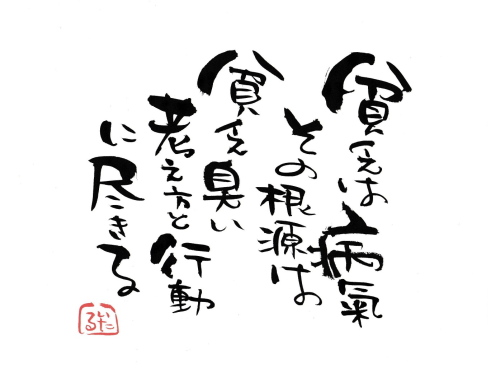 貧乏は病氣
その根源は
貧乏臭い
考え方と行動
に尽きる